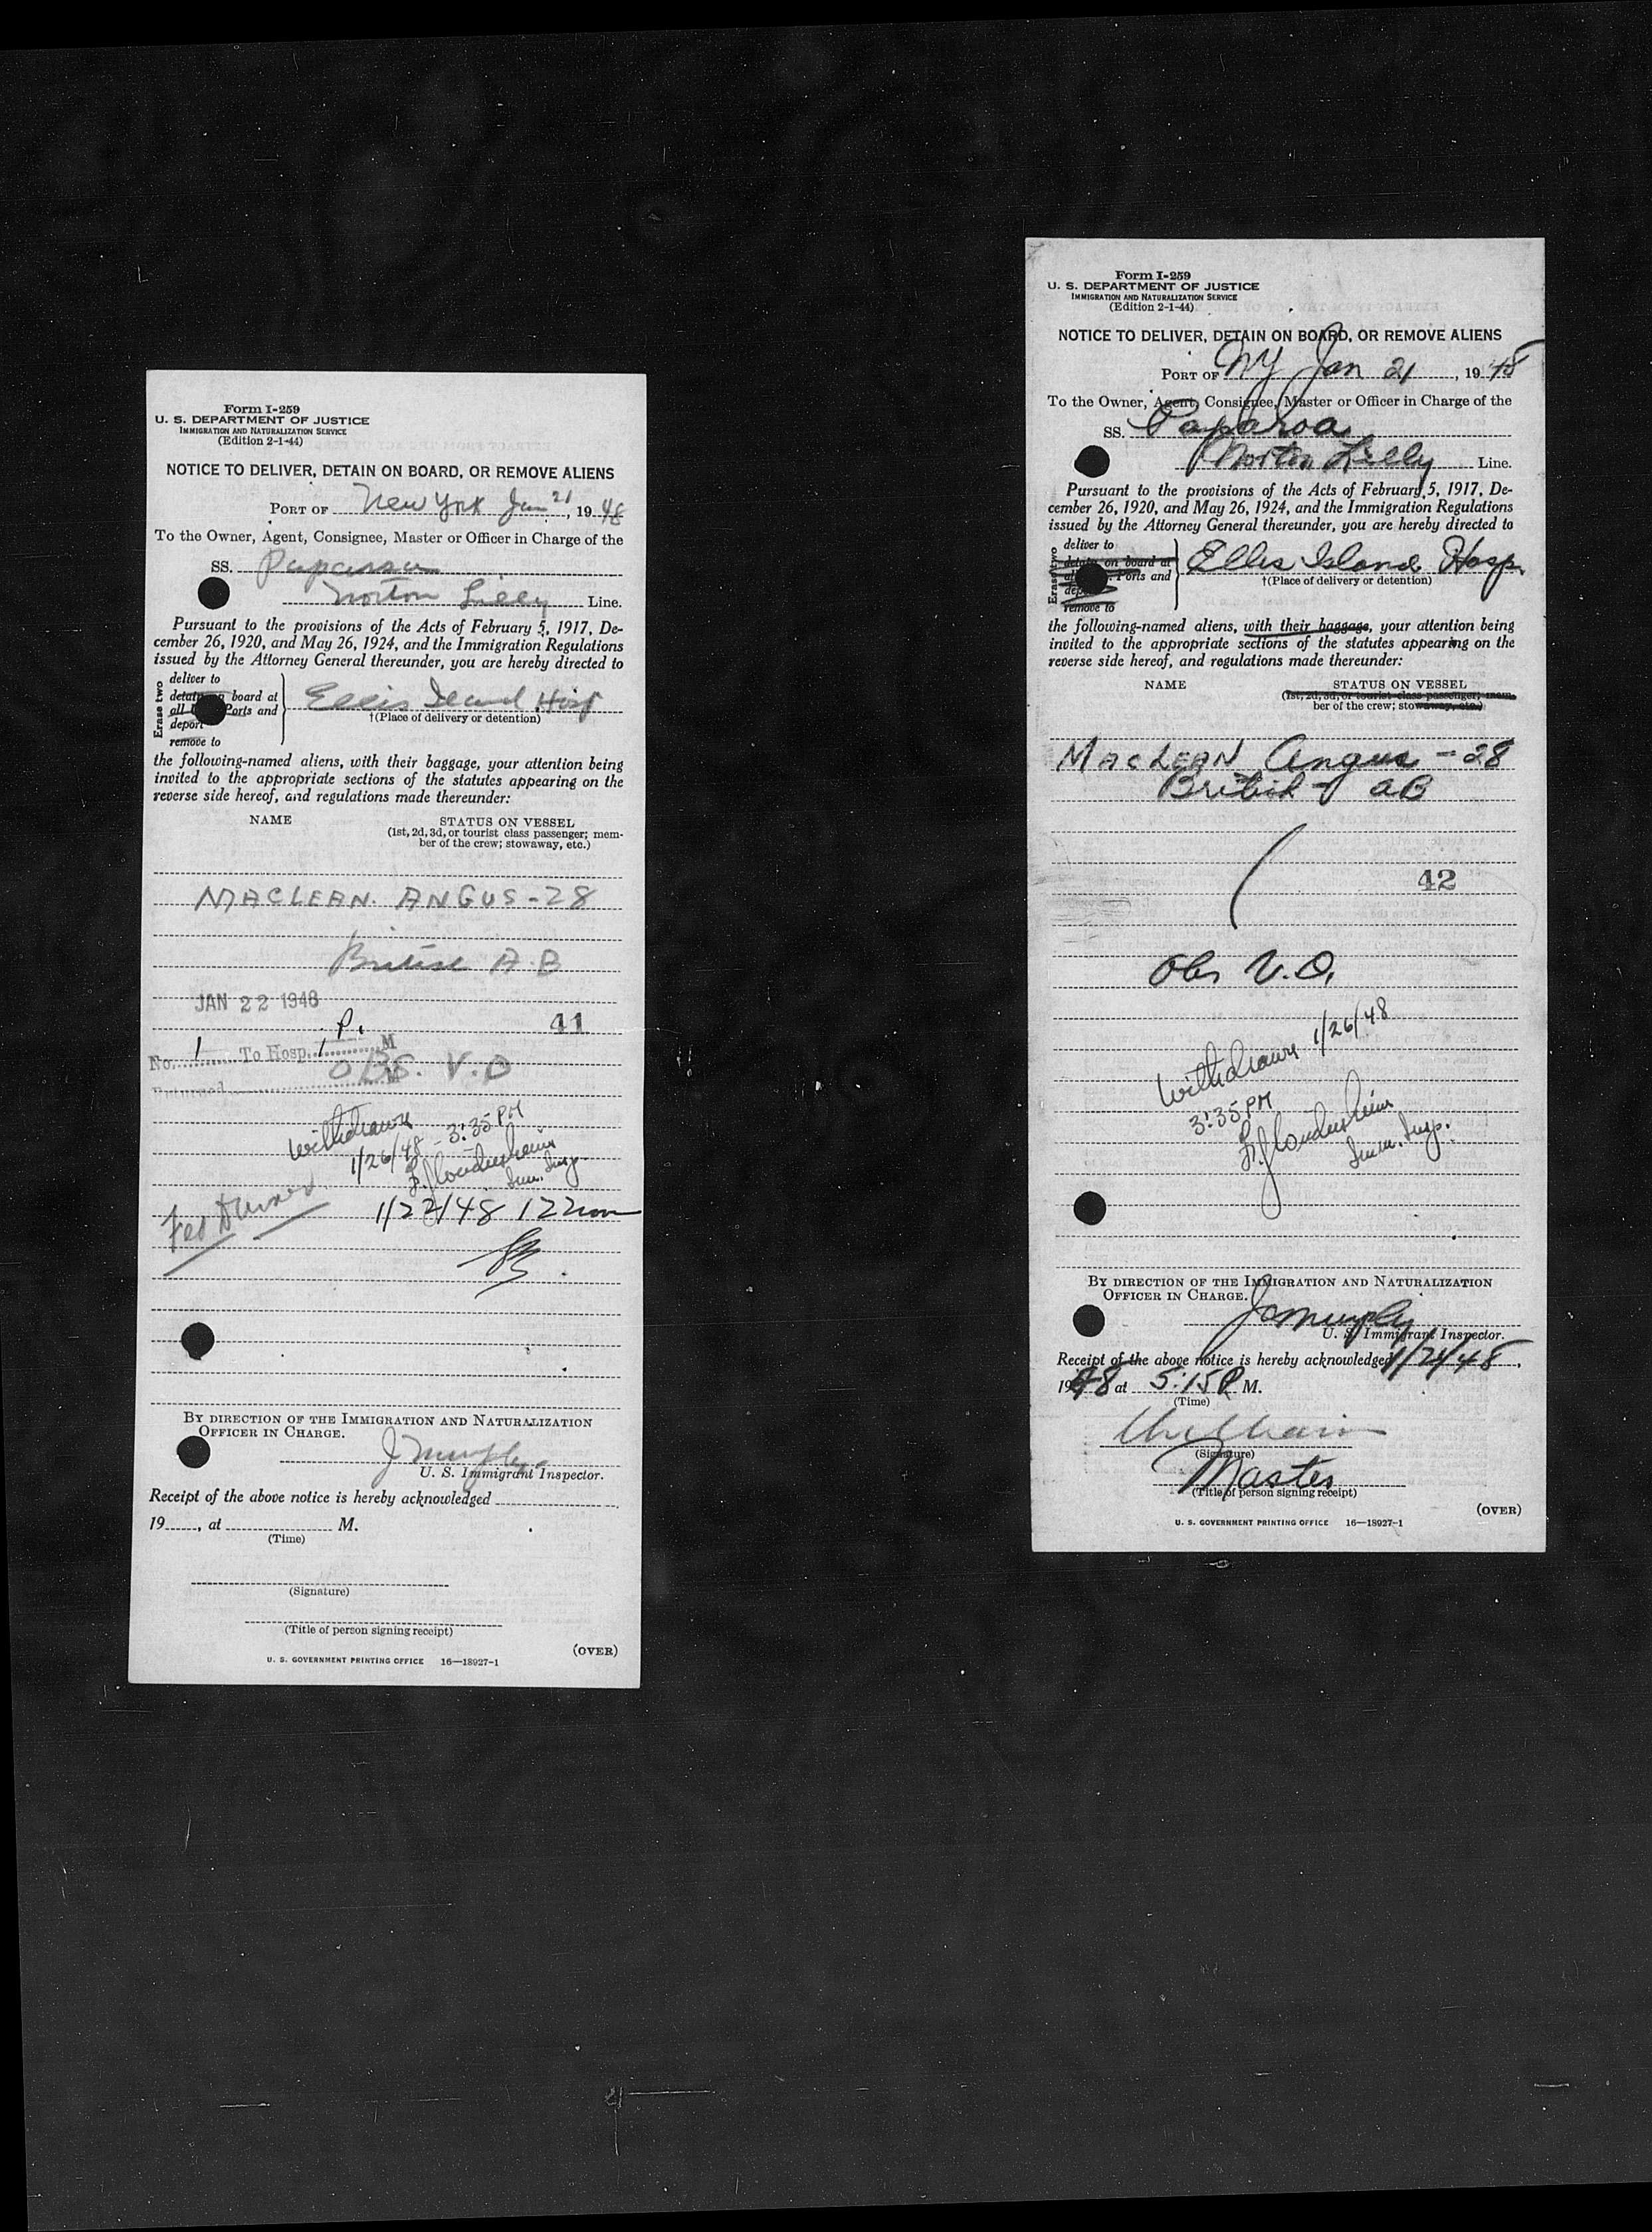 Form I-259
U. S. DEPARTMENT OF JUSTICE
IMMIGRATION AND NATURALIZATION SERVICE
(Edition 2-1-44)
NOTICE TO DELIVER, DETAIN ON BOARD, OR REMOVE ALIENS
PORT OF New York Jan 21, 1948
To the Owner, Agent, Consignee, Master or Officer in Charge of the
SS. Paparoa
Norton Lilly Line.
Pursuant to the provisions of the Acts of February 5, 1917, De-
cember 26, 1920, and May 26, 1924, and the Immigration Regulations
issued by the Attorney General thereunder, you are hereby directed to
Erase two
deliver to
detain on board at
all Ports and
deport
remove to
Ellis Island Hosp
†(Place of delivery or detention)
the following-named aliens, with their baggage, your attention being
invited to the appropriate sections of the statutes appearing on the
reverse side hereof, and regulations made thereunder:
NAME STATUS ON VESSEL
(1st, 2d, 3d, or tourist class passenger; mem-
ber of the crew; stowaway, etc.)
MACLEAN. ANGUS - 28
British A.B
JAN 22 1948
41
No. 1 To Hosp. 1 P. M
OBS. V.D
Returned M
Withdrawn
1/26/48 - 3:35 PM
Imm. Insp.
Fed Dinner
1/22/48 12 noon
BY DIRECTION OF THE IMMIGRATION AND NATURALIZATION
OFFICER IN CHARGE.
J Murphy
U. S. Immigrant Inspector.
Receipt of the above notice is hereby acknowledged
19, at M.
(Time)
(Signature)
(Title of person signing receipt)
(OVER)
U. S. GOVERNMENT PRINTING OFFICE 16—18927-1
Form I-259
U. S. DEPARTMENT OF JUSTICE
IMMIGRATION AND NATURALIZATION SERVICE
(Edition 2-1-44)
NOTICE TO DELIVER, DETAIN ON BOARD, OR REMOVE ALIENS
PORT OF NY Jan 21, 1948
To the Owner, Agent, Consignee, Master or Officer in Charge of the
SS. Paparoa
Norton Lilly Line.
Pursuant to the provisions of the Acts of February 5, 1917, De-
cember 26, 1920, and May 26, 1924, and the Immigration Regulations
issued by the Attorney General thereunder, you are hereby directed to
Erase two
deliver to
detain on board at
Ports and
remove to
Ellis Island Hosp.
†(Place of delivery or detention)
the following-named aliens, with their baggage, your attention being
invited to the appropriate sections of the statutes appearing on the
reverse side hereof, and regulations made thereunder:
NAME STATUS ON VESSEL
(1st, 2d, 3d, or tourist class passenger; mem-
ber of the crew; stowaway, etc.)
MACLEAN Angus - 28
British - AB
42
Obs V.D.
Withdrawn 1/26/48
3:35 PM
Imm. Insp.
BY DIRECTION OF THE IMMIGRATION AND NATURALIZATION
OFFICER IN CHARGE.
J Murphy
U. S. Immigrant Inspector.
Receipt of the above notice is hereby acknowledged 1/21/48,
1948 at 5:15 P M.
(Time)
(Signature)
Master
(Title of person signing receipt)
(OVER)
U. S. GOVERNMENT PRINTING OFFICE 16—18927-1